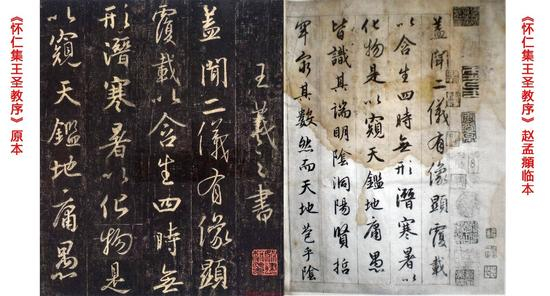 《怀仁集王圣教序》原本
王羲之書
盖聞二儀有像顯
覆載以含生四時無
形潛寒暑以化物是
以窺天鑑地庸愚
《怀仁集王圣教序》赵孟頫临本
盖聞二儀有像顯覆載
以含生四時無形潛寒暑以
化物是以窺天鑑地庸愚
皆識其端明陰洞陽賢哲
罕窮其數然而天地苞乎陰